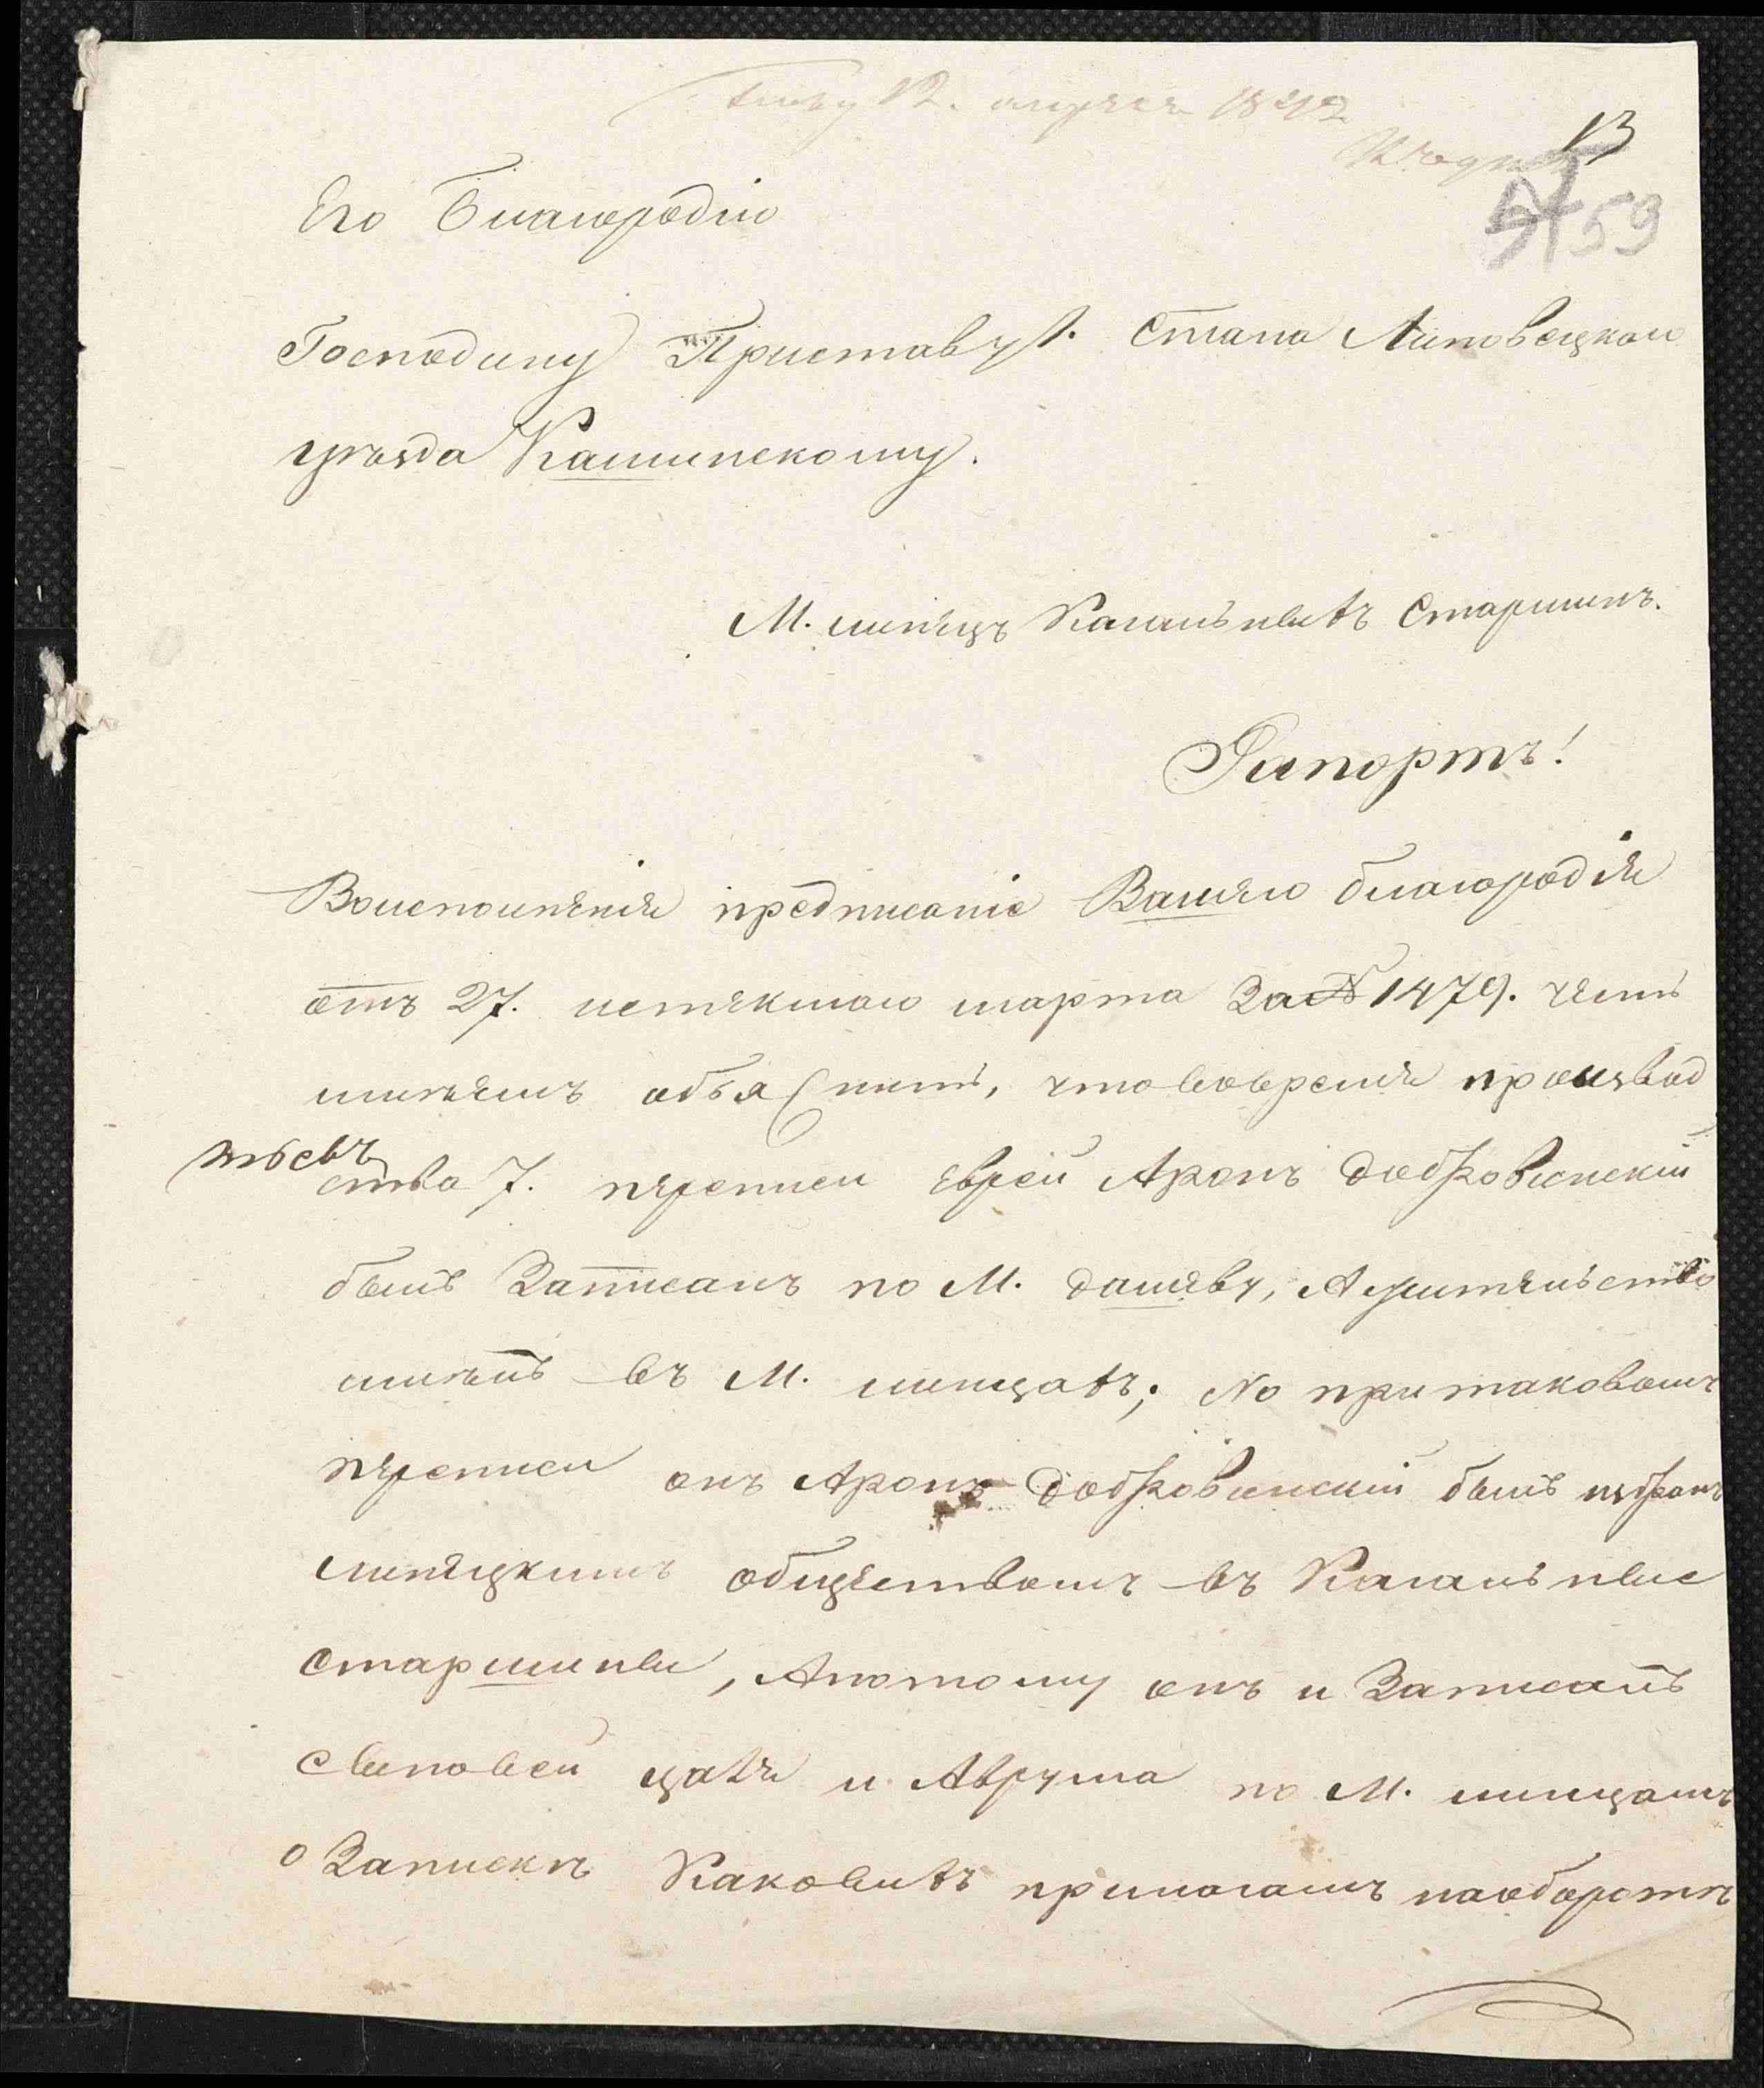 12. апреля 1842
13
59
Его Благородію
Господину Приставу 1. Стана Липовецкого
уѣзда Кашинскому.
М. липѣцъ Кагальныхъ Старшинъ.
Рапортъ!
Воисполненія предписаніе Вашего благородія
отъ 27. истекшаго марта За № 1479. честь
имѣемъ объяснить, что вовремя производ
ства 7. переписи еврей Аронъ Добровинскій
былъ Записанъ по М. дашеву, Ажительство
имѣлъ въ М. липцахъ; Но притаковомъ
переписи онъ Аронъ Добровинскій былъ избранъ
липецкимъ обществомъ въ Кагальные
Старшины, Апотому онъ и Записалъ
сыновей и Аврума по М. липцамъ
о Запискѣ Каковыхъ прилагаемъ наоборотѣ